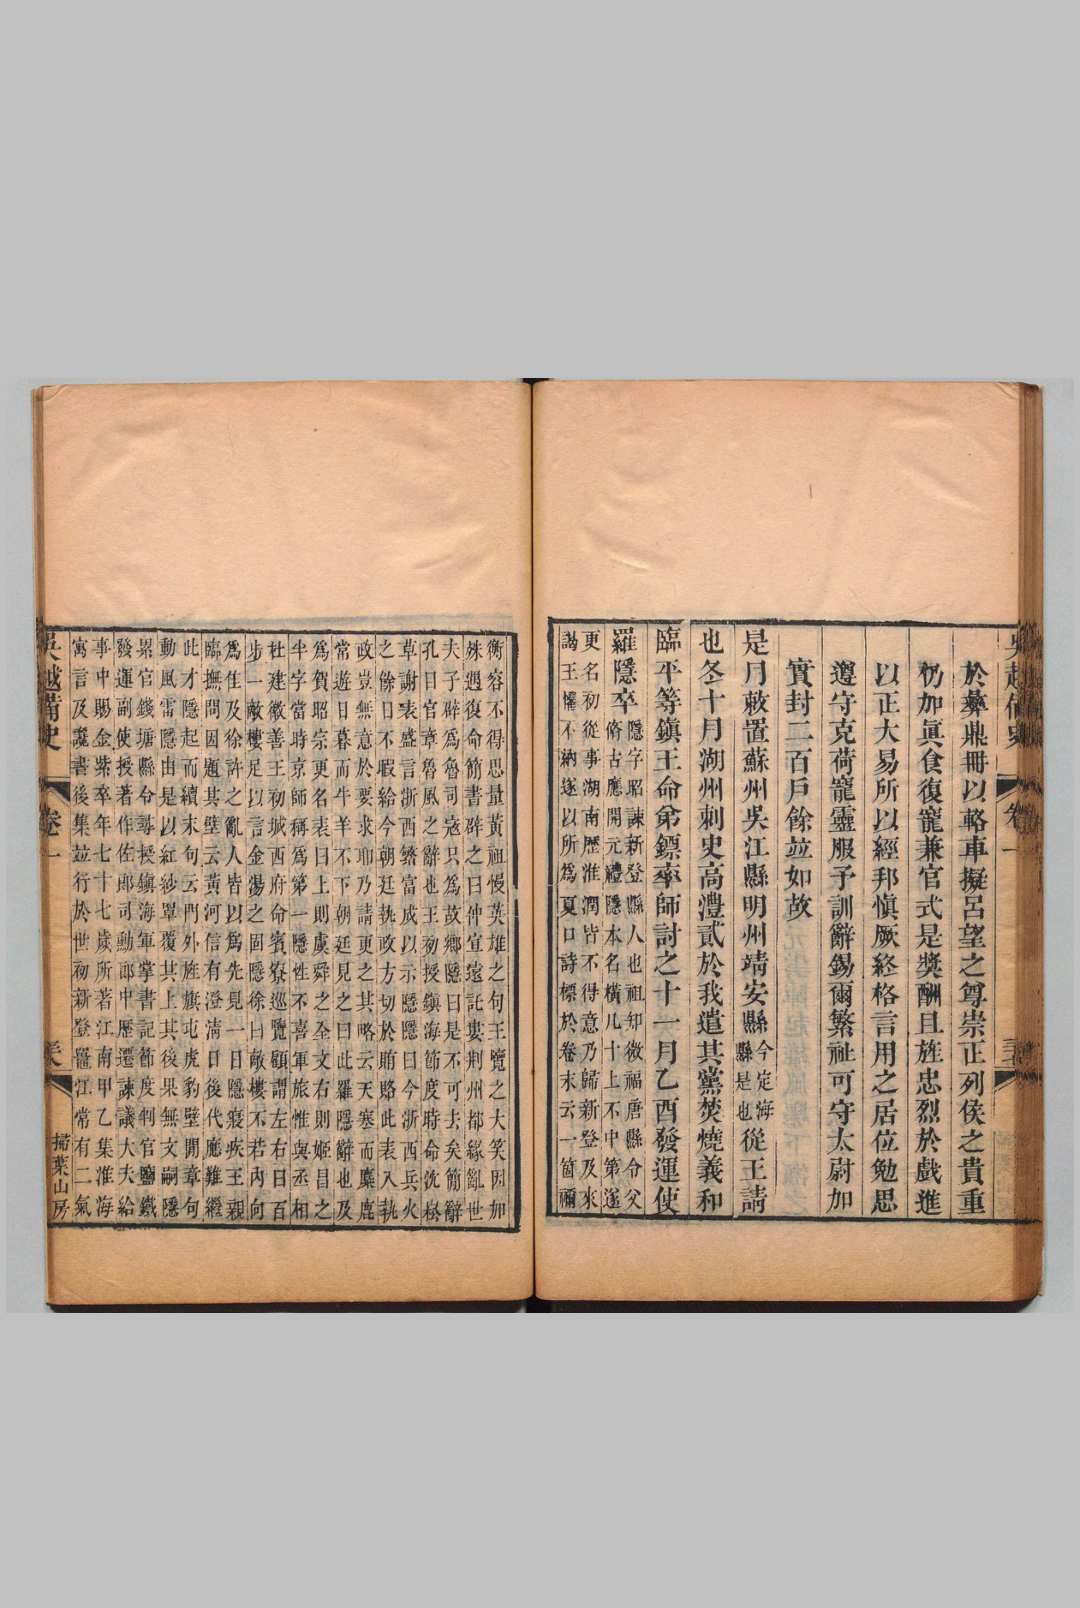 於彝鼎冊以輅車擬呂望之尊崇正列侯之貴重
仍加眞食復寵兼官式是獎酬且旌忠烈於戲進
以正大易所以經邦愼厥終格言用之居位勉思
遵守克荷寵靈服予訓辭錫爾繁祉可守太尉加
實封二百戶餘竝如故
是月敕置蘇州吳江縣明州靖安縣今定海縣是也從王請
也冬十月湖州刺史高澧貳於我遣其黨焚燒義和
臨平等鎮王命弟鏢率師討之十一月乙酉發運使
羅隱卒隱字昭諫新登縣人也祖知微福唐縣令父
脩古應開元禮隱本名橫凡十上不中第遂
更名初從事湖南歷淮潤皆不得意乃歸新登及來
謁王懼不納遂以所爲夏口詩標於卷末云一箇禰
衡容不得思量黃祖慢英雄之句王覽之大笑因加
殊遇復命簡書辟之曰仲宣遠託婁荊州都緣亂世
夫子辟爲魯司寇只爲故鄉隱曰是不可去矣簡辭
孔目官章魯風之辭也王初授鎮海節度時命沈崧
草謝表盛言浙西繁富成以示隱隱曰今浙西兵火
之餘日不暇給今朝廷執政方切於賄賂此表入執
政豈無意於要求耶乃請更之其略云天寒而麋鹿
常遊日暮而牛羊不下朝廷見之曰此羅隱辭也及
爲賀昭宗更名表曰上則虞舜之全文右則姬昌之
半字當時京師稱爲第一隱性不喜軍旅惟與丞相
杜建徽善王初城西府命賓寮巡覽顧謂左右曰百
步一敵樓足以言金湯之固隱徐曰敵樓不若內向
爲佳及徐許之亂人皆以爲先見一日隱寢疾王親
臨撫問因題其壁云黃河信有澄淸日後代應難繼
此才隱起而續末句云門外旌旗屯虎豹壁閒章句
動風雷隱由是以紅紗罩覆其上其後果無文嗣隱
累官錢塘縣令尋授鎮海軍掌書記節度判官鹽鐵
發運副使授著作佐郎司勳郎中歷遷諫議大夫給
事中賜金紫卒年七十七歲所著江南甲乙集淮海
寓言及讒書後集竝行於世初新登鼉江常有二氣
吳越備史 卷一 掃葉山房